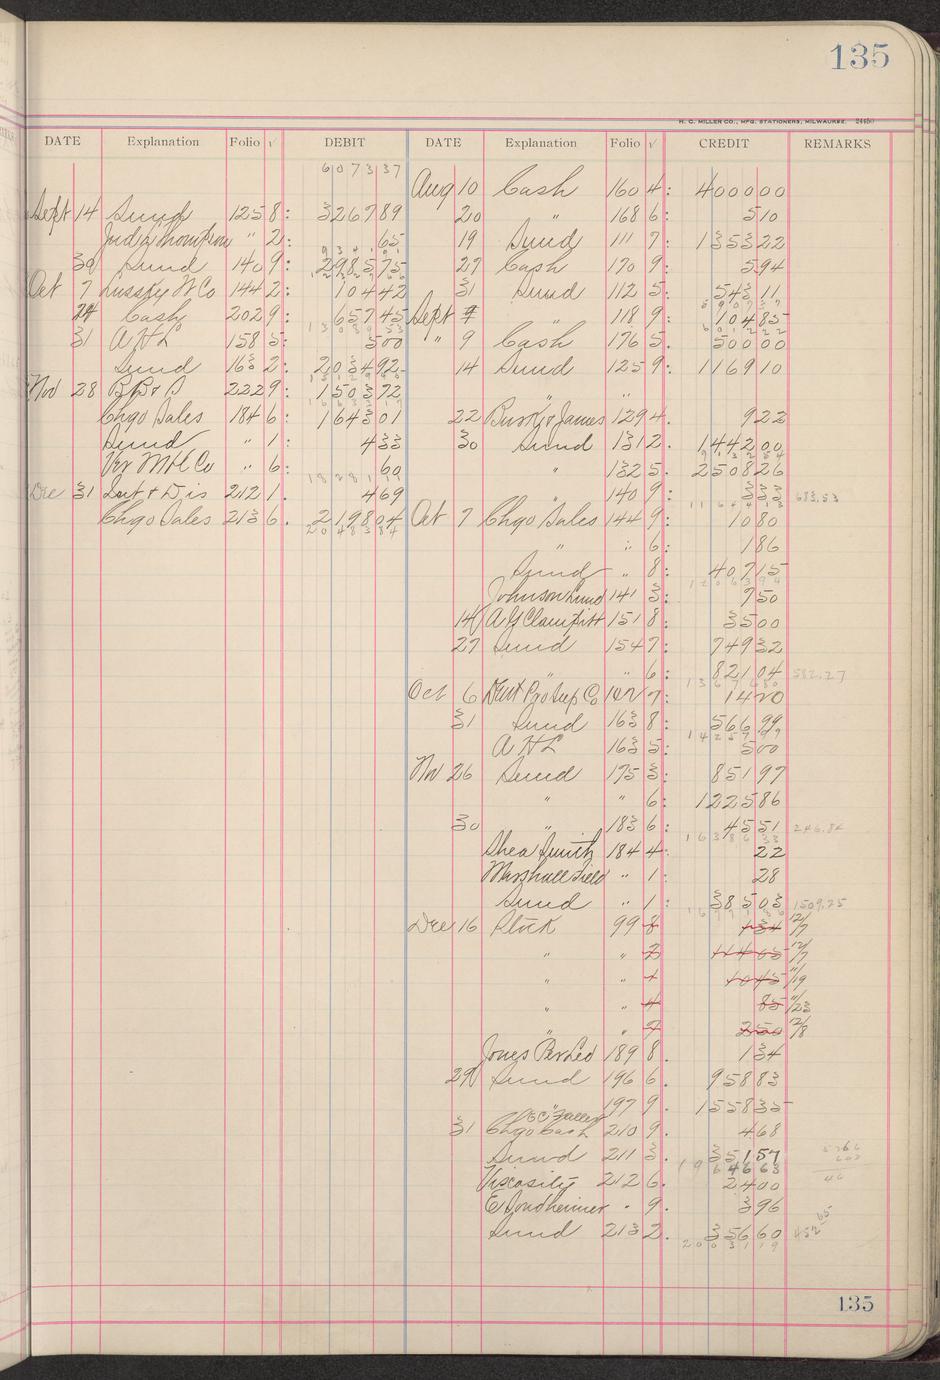 135
H. C. MILLER CO., MFG. STATIONERS, MILWAUKEE. 24450
DATE Explanation Folio √ DEBIT DATE Explanation Folio √ CREDIT REMARKS
6 0 7 3 37
Aug 10 Cash 160 4: 4000 00
Sept 14 Sund 125 8: 3267 89
20 " 168 6: 5 10
" 2: 65
19 Sund 111 7: 1353 22
30 Sund 140 9: 2985 75
27 Cash 170 9: 5 94
Oct 7 W Co 144 2: 104 42
31 Sund 112 5: 543 11
24 Cash 202 9: 657 45
Sept 7 " 118 9: 104 85
31 A H L 158 5: 5 00
" 9 Cash 176 5. 500 00
Sund 163 2: 2034 92
14 Sund 125 9: 1169 10
Nov 28 B B & S 222 9: 1503 72
"
Chgo Sales 184 6: 1643 01
22 & James 129 4. 9 22
Sund " 1: 4 33
30 Sund 131 2. 1442 00
Ver M & C Co " 6: 60
" 132 5. 2508 26
Dec 31 Int & Dis 212 1. 4 69
140 9: 3 33 683.53
Chgo Sales 213 6. 2198 04
2 0 4 8 3 8 4
Oct 7 Chgo Sales 144 9: 10 80
" " 6: 1 86
Sund " 8: 407 15
Johnson Lund 141 3: 7 50
14 A Y Clampitt 151 8: 35 00
27 Sund 154 7: 749 32
" 6: 82 04 582.27
Oct 6 Sup Co 142 7: 14 20
31 Sund 163 8: 566 99
A H L 163 5: 5 00
Nov 26 Sund 175 3: 851 97
" " 6: 1225 86
30 " 183 6: 45 51 246.84
Shea Smith 184 4. 22
Marshall Field " 1: 28
Sund " 1: 385 03 1509.25
Dec 16 Stock 99 8 1 34 12/7
" " 2 12/7
" " 1 10 45 11/19
" " 4 85 11/23
" " 7 2 50 12/8
Jones Per Led 189 8. 1 34
29 Sund 196 6. 958 83
" 197 9. 1558 35
31 Chgo Cash 210 9. 4 68
Sund 211 3. 351 57
1 9 6 4 6 63
Viscosity 212 6. 24 00
E Sondheimer " 9. 3 96
Sund 213 2. 356 60
2 0 0 3 1 1 9
135